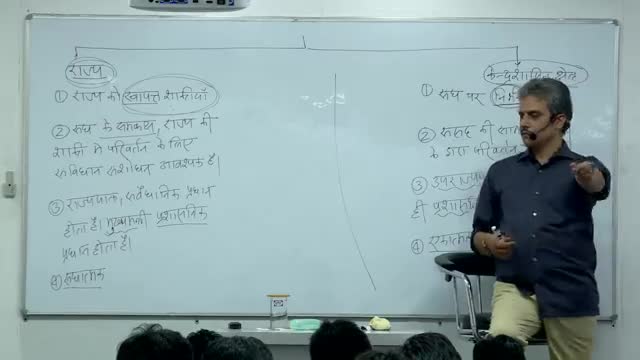 राज्य
① राज्य को स्वायत्त शक्तियाँ
② संघ के समकक्ष, राज्य की
शक्ति में परिवर्तन के लिए
संविधान संशोधन आवश्यक है।
③ राज्यपाल, संवैधानिक प्रधान
होता है। मुख्यमंत्री प्रशासनिक
प्रधान होता है।
④ संघात्मक
केन्द्रशासित क्षेत्र
① संघ पर
② संसद की
के द्वारा परिवर्तन
③ उपराज्यपाल
ही प्रशासनिक
④ एकात्मक